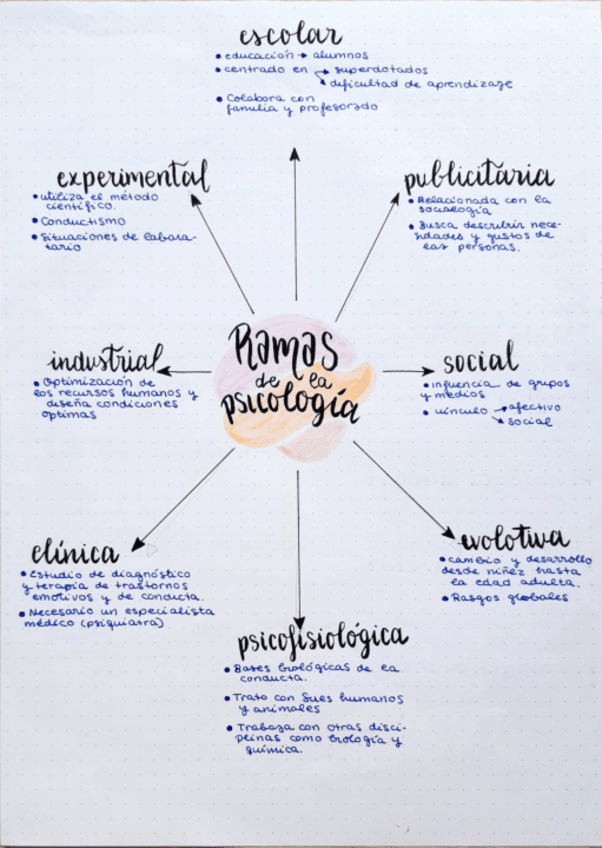 escolar
• educación → alumnos
• centrado en → superdotados
→ dificultad de aprendizaje
• Colabora con
familia y profesorado
experimental
• utiliza el método
científico.
• Conductismo
• Situaciones de labora-
torio
publicitaria
• Relacionada con la
sociología
• Busca descubrir nece-
sidades y gustos de
las personas.
Ramas
de la
psicología
industrial
• Optimización de
los recursos humanos y
diseña condiciones
óptimas
social
• influencia de grupos
y medios
• vínculo → afectivo
→ social
clínica
• Estudio de diagnóstico
y terapia de trastornos
emotivos y de conducta.
• Necesario un especialista
médico (psiquiatra)
evolutiva
• cambio y desarrollo
desde niñez hasta
la edad adulta.
• Rasgos globales
psicofisiológica
• Bases biológicas de la
conducta.
• Trato con seres humanos
y animales
• Trabaja con otras disci-
plinas como biología y
química.